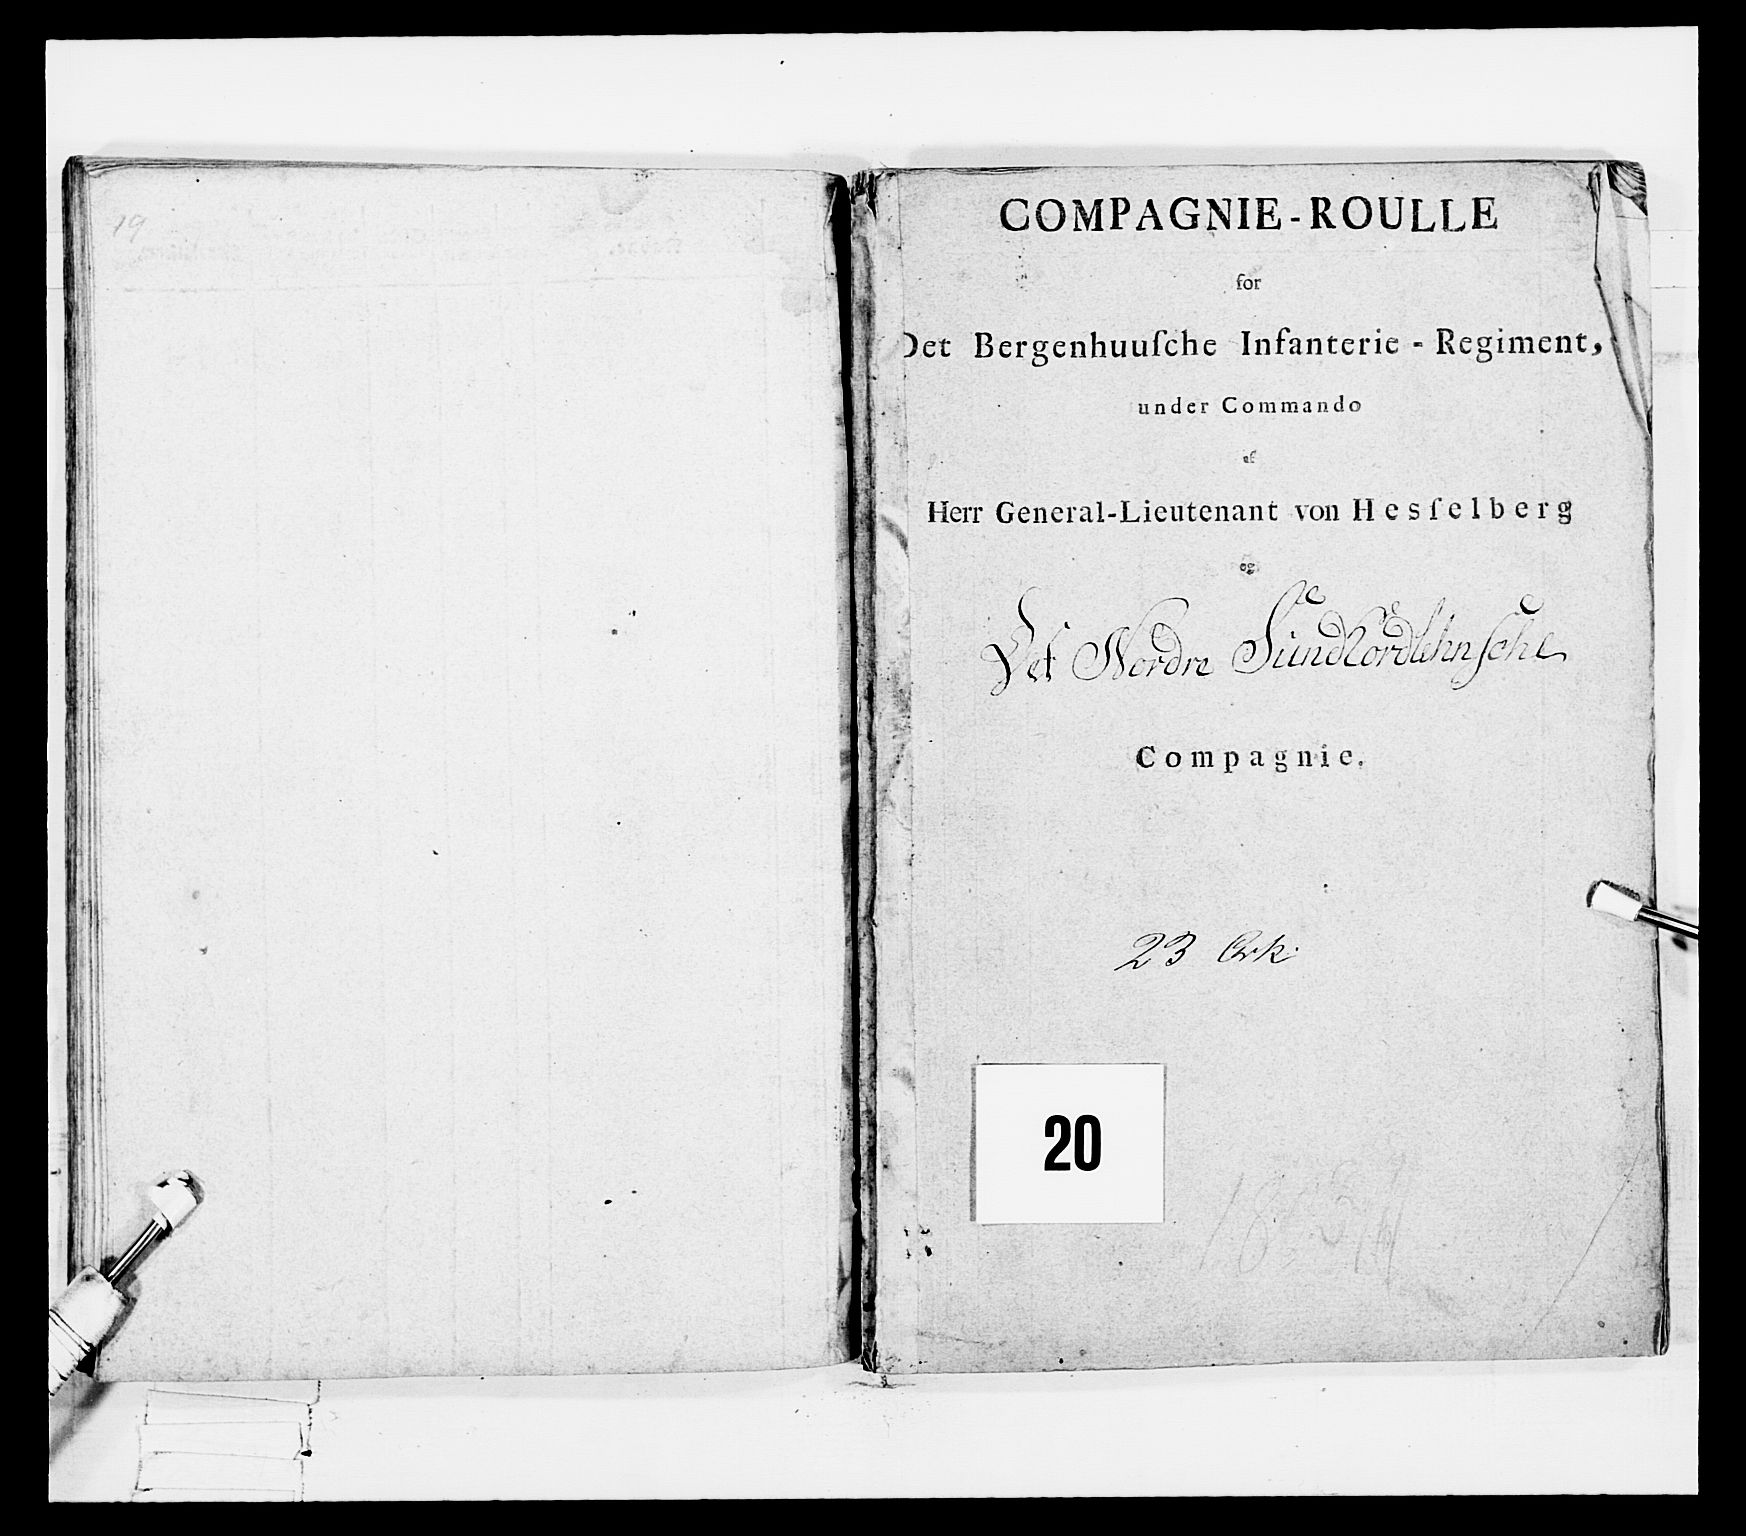 19
COMPAGNIE-ROULLE
for
Det Bergenhuuſche Infanterie - Regiment,
under Commando
af
Herr General-Lieutenant von Hesſelberg
og
Det Nordre Sündhordlehnsche
Compagnie.
23 Ark.
20